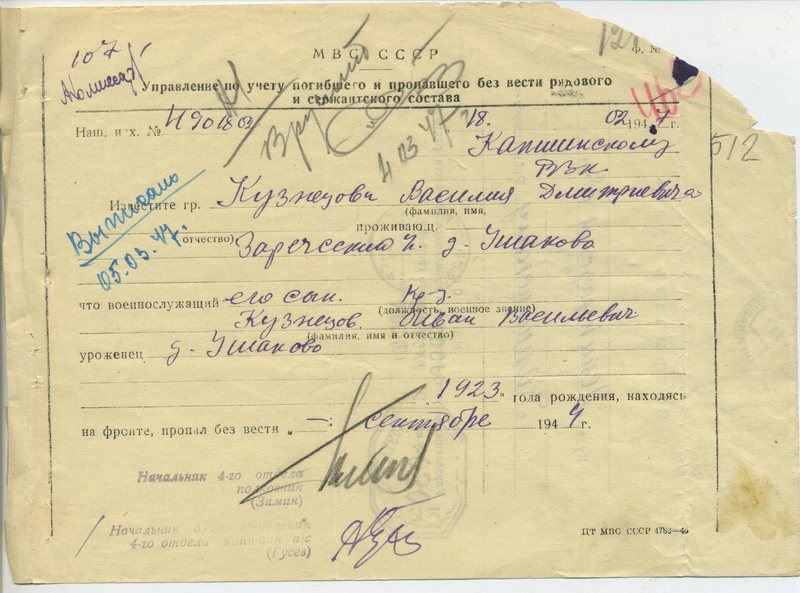 107
МВС СССР
Ф. №
Управление по учету погибшего и пропавшего без вести рядового
и сержантского состава
№1
Вручено
4 03 47
463
512
Наш, исх. №
18. 02 1947 г.
Капшинскому
РВК
Выписано
05.03.47.
Известите гр. Кузнецова Василия Дмитриевича
(фамилия, имя,
отчество)
проживающ.
д. Ушаково
что военнослужащий его сын. Кр-ц.
(должность, военное звание)
Кузнецов Иван Васильевич
(фамилия, имя и отчество)
уроженец д. Ушаково
1923 года рождения, находясь
на фронте, пропал без вести „ — " сентябре 1944 г.
Начальник 4-го отдела
полковник
(Зимин)
Начальник 3-го отделения
4-го отдела капитан и/с
(Гусев)
ЦТ МВС СССР 4783—46